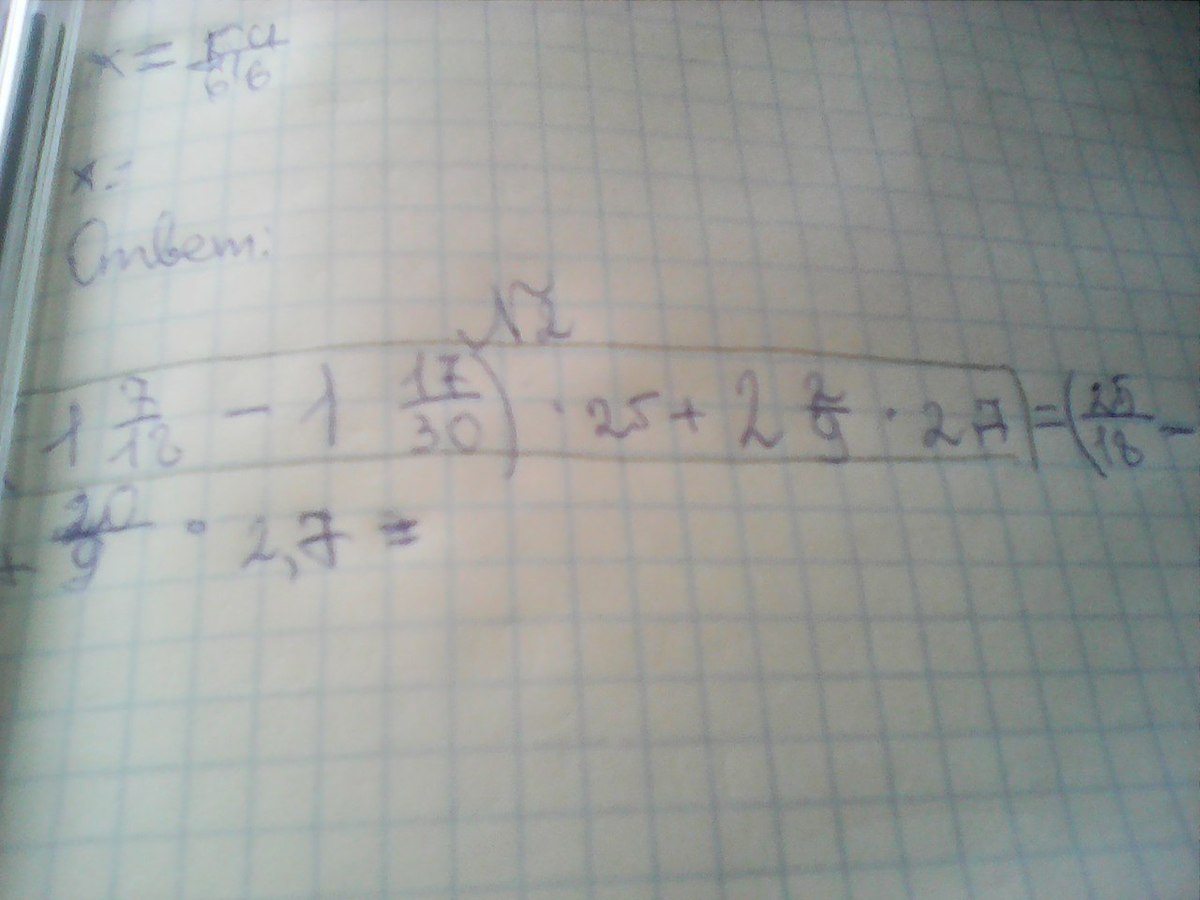 x = 54/66
x =
Ответ:
№2
(1 7/18 - 1 17/30) · 25 + 2 2/9 · 27 = (25/18 -
+ 20/9 · 2,7 =